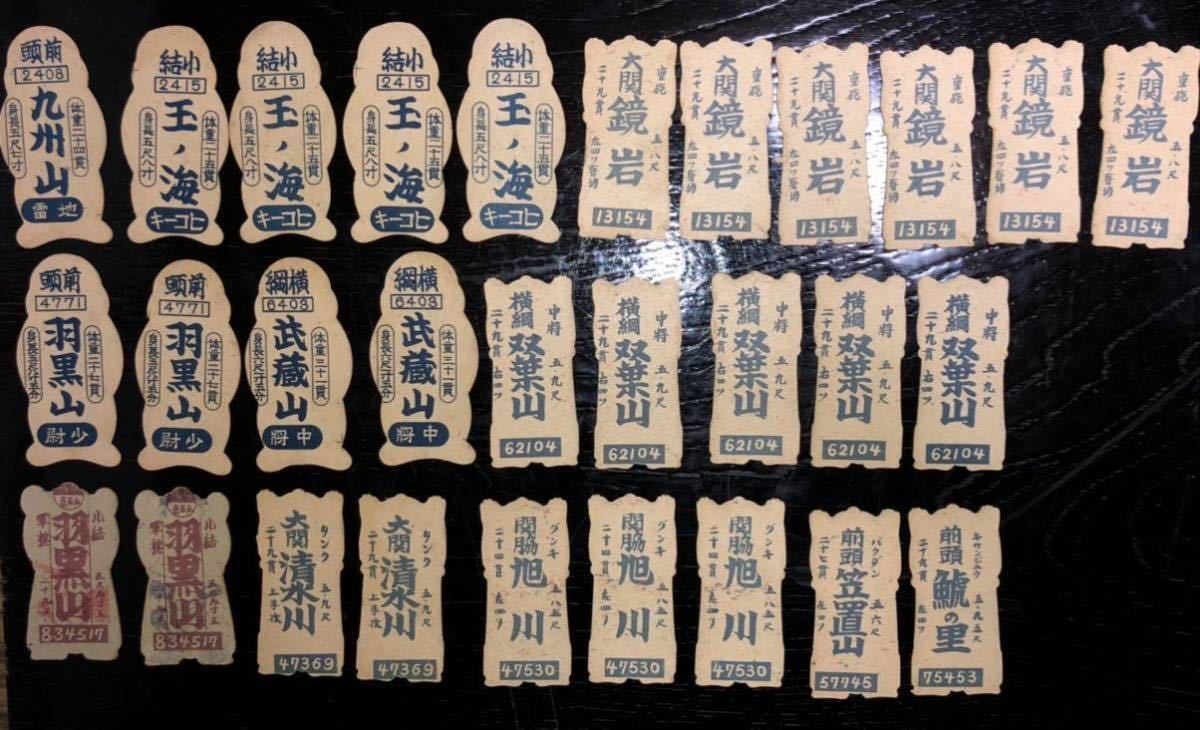 前頭
2408
九州山
体重二十四貫
身長五尺七寸
地雷
小結
2415
玉ノ海
体重二十五貫
身長五尺八寸
ヒコーキ
小結
2415
玉ノ海
体重二十五貫
身長五尺八寸
ヒコーキ
小結
2415
玉ノ海
体重二十五貫
身長五尺八寸
ヒコーキ
小結
2415
玉ノ海
体重二十五貫
身長五尺八寸
ヒコーキ
重砲 五、八尺
大関 鏡岩
二十九貫
13154
重砲 五、八尺
大関 鏡岩
二十九貫
13154
重砲 五、八尺
大関 鏡岩
二十九貫
13154
重砲 五、八尺
大関 鏡岩
二十九貫
13154
重砲 五、八尺
大関 鏡岩
二十九貫
13154
重砲 五、八尺
大関 鏡岩
二十九貫
13154
前頭
4771
羽黒山
体重二十七貫
少尉
前頭
4771
羽黒山
体重二十七貫
少尉
横綱
6403
武蔵山
体重三十一貫
中将
横綱
6403
武蔵山
体重三十一貫
中将
中将 五、九尺
横綱 双葉山
二十九貫 右四ツ
62104
中将 五、九尺
横綱 双葉山
二十九貫 右四ツ
62104
中将 五、九尺
横綱 双葉山
二十九貫 右四ツ
62104
中将 五、九尺
横綱 双葉山
二十九貫 右四ツ
62104
中将 五、九尺
横綱 双葉山
二十九貫 右四ツ
62104
小結
羽黒山
軍旗
834517
小結
羽黒山
軍旗
834517
タンク 五、九尺
大関 清水川
二十九貫 上手投
47369
タンク 五、九尺
大関 清水川
二十九貫 上手投
47369
グンキ 五、八五尺
関脇 旭川
二十四貫 左四ツ
47530
グンキ 五、八五尺
関脇 旭川
二十四貫 左四ツ
47530
グンキ 五、八五尺
関脇 旭川
二十四貫 左四ツ
47530
バクダン 五、六尺
前頭 笠置山
二十七貫 左四ツ
57745
五、九五尺
前頭 鯱の里
二十九貫 左四ツ
75453